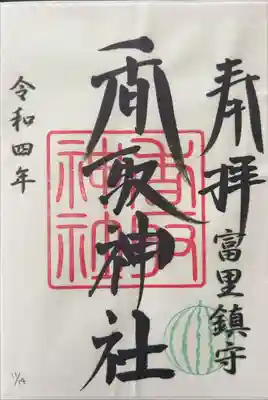 奉拝
富里鎮守
香取神社
香取
神社
令和四年